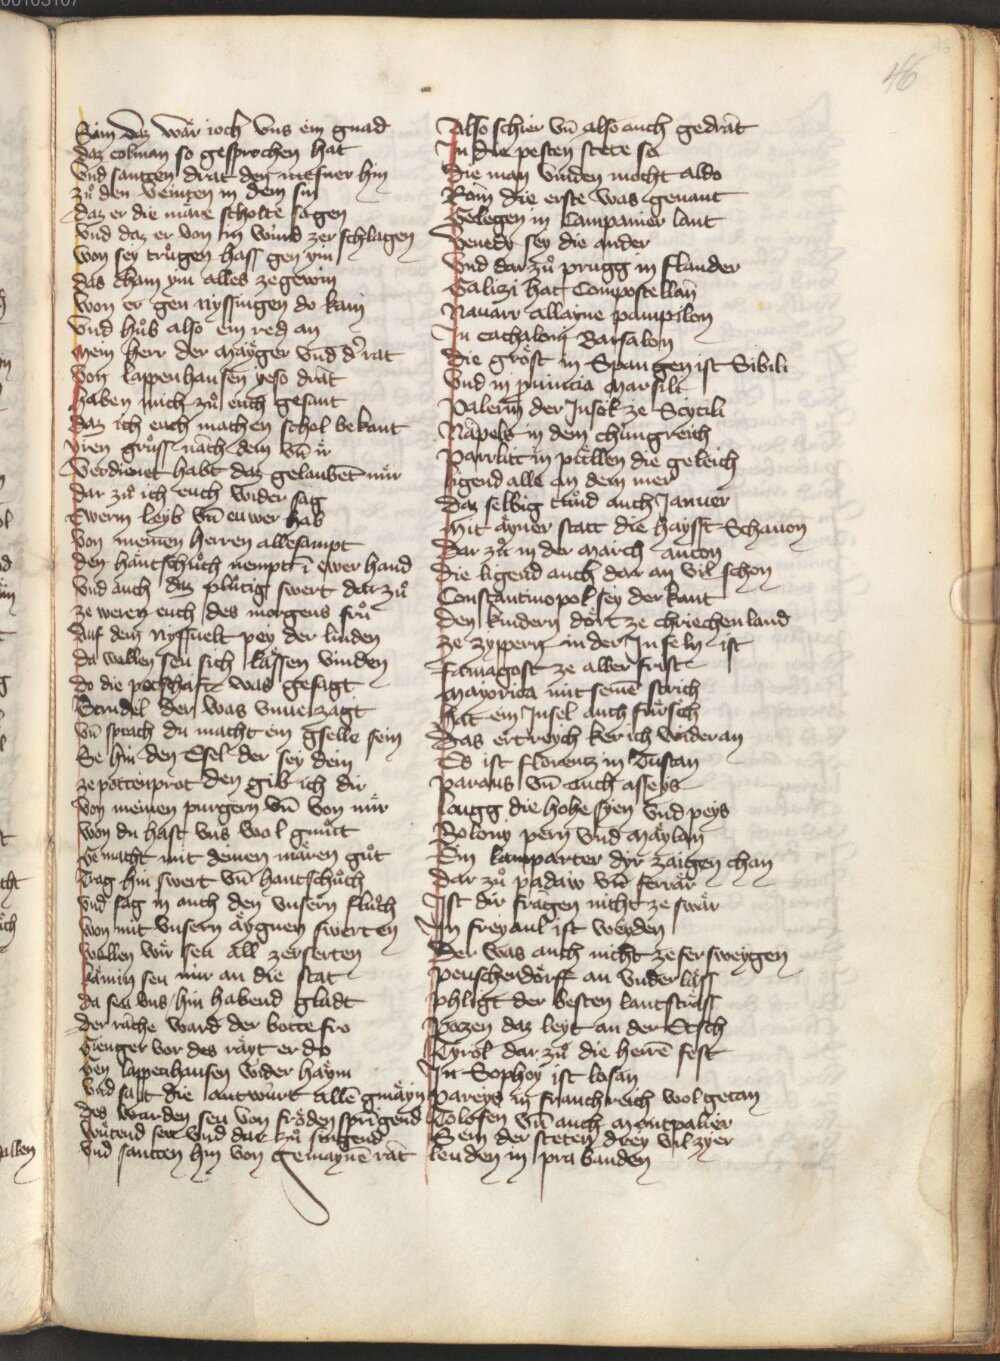 46
Sam daz wär ioch vns ein gnad
daz colman so gesprochen hat
vnd santen drat den mesner hin
zuͦ den veinten in dem sin
daz er die märe scholte sagen
vnd daz er von in wurd zerschlagen
won sey truͦgen hass gen ym
das cham ym alles ze gewin
won er gen nyssingen do kam
vnd huͦb also ein red an
mein herr der mayger vnd d' rat
von lappenhausen yeso drät
haben mich zuͦ euch gesant
daz ich euch machen schol bekant
yren gruͦss näch dem vn̄ ir
verdienet habt daz gelaubet mir
dar zuͦ ich euch wider sag
Ewerm leyb vn̄ euwer hab
von meinen herren allesampt
den häntschuͦch nempt ī ewer hand
vnd auch daz pluͦtig swert dar zuͦ
ze weren euch des morgens fruͦ
Auf dem nyssuelt pey der linden
da wellen seu sich lässen vinden
do die potschaft was gesagt
Strudel der was vnuerzagt
vn̄ sprach du macht ein gselle sein
Se hin den Esel der sey dein
ze pottenprot den gib ich dir
von meinen purgern vn̄ von mir
won du hast vns wol gmuͦtt
Gemacht mit deinen mären guͦt
Trag hin swert vn̄ hantschuͦch
vnd sag in auch den vnsern fluͦch
won mit vnsern äygnen swerten
wellen wir seu all zerserten
kämin seu nur an die stat
da seu vns hin habend gladt
der räche ward der botte fro
Gienger vor des räyt er do
Gen lappenhausen wider häym
vnd sait die antwurt allē gmäin
des wurden seu von fröden springend
wuͦtend ser vnd dar zuͦ singend
vnd santten hin von gemaynē rät
Also schier vn̄ also auch gedrät
In die pesten stete so
Die man vinden mocht aldo
Röm die erste was genant
Gelegen in Campanier lant
Venedy sey die ander
vnd dar zuͦ prugg in flander
Galizi hat Compostellan
Nauarr allayne pampilon
In cathaloni Barsalon
die gröst in Spangen ist Sibili
vnd in prüncia marsili
Palerm der Insel ze Scycili
Näpels in dem chüngreich
Parrlitt in püllen die geleich
ligend alle an dem mer
Daz selbig tuͦnd auch Januer
mit ayner statt die haysst Schauon
Dar zuͦ in der march anton
Die ligend auch dar an vil schon
Constantinopol sey derkant
Den kindern dört ze chriechenland
ze zyppern in der Inseln ist
Famagost ze aller frist
Mayorica mit seinē strich
hät ein Insel auch für sich
Das ertreych ker ich wider an
Es ist florentz in Tustan
Paraus vn̄ auch asseys
laugg die hohe syen vnd peys
Bolony pern vnd maylan
Ein lamparter dyr zaigen chan
dar zuͦ padaw vn̄ ferrär
Ist dir frägen nicht ze swär
In freyaul ist weyden
Der was auch nicht ze fersweygen
Peuschendörff an vnderläss
phligt der besten lantsträss
Pozen daz leyt an der Etsch
Tyrol dar zuͦ die herrē fest
In Sophoy ist losan
pareys in franchreich wolgetan
Tolosen vn̄ auch montpalier
Sein der steten drey vil zyer
leuden in prabanden